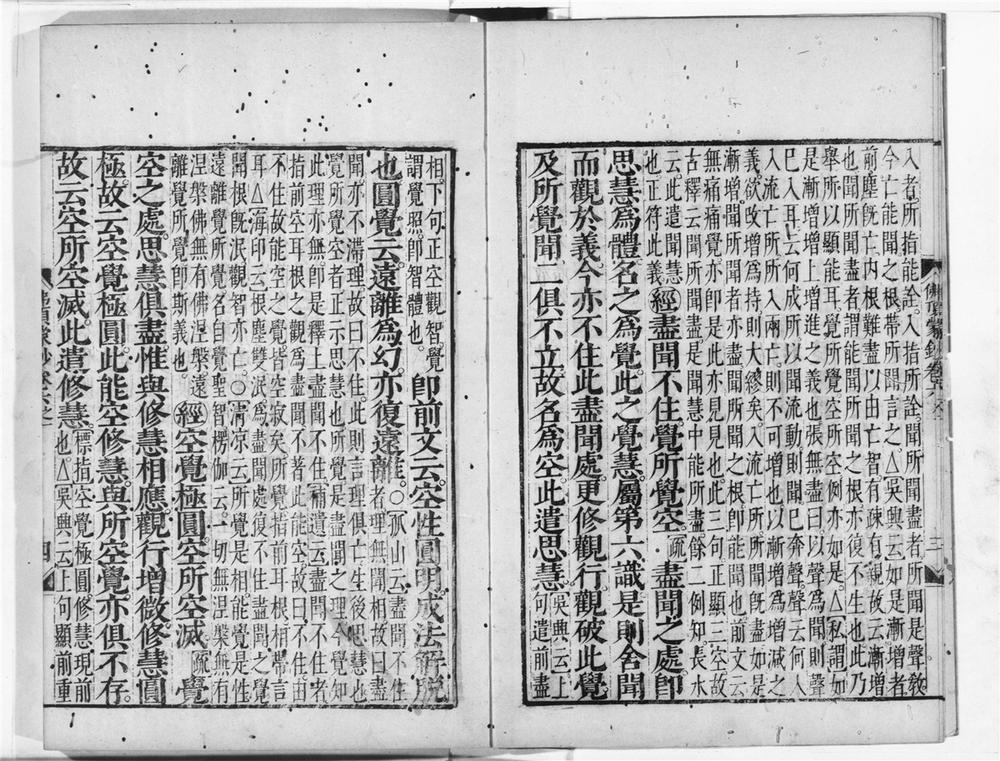 入者所指能詮入指所詮聞所聞盡者所聞是聲教
今亡能聞之根帶所聞言之△吳興云如是漸增者
前塵既亡内根難盡以由亡智有疎有親故云漸增
也聞所聞盡者謂能所聞之根亦復不生也此乃
舉所以顯能耳覺所覺空所空例亦如是△私謂如
是漸增增上增進之義也張無盡曰以聲爲聞則聲
巳入耳云何成所以聞流動則聞巳奔聲聲云何人
入流亡所所入兩亡則不可增也以漸增爲增減之
義欲改增爲持則大繆矣入流亡所所聞既盡如是
漸增聞所聞盡所聞之根即能聞也前文云
無痛痛覺亦即是此亦見見也此三句正顯三空故
古釋云聞所聞盡是聞慧中能所盡餘二例知長水
云此遣聞慧
也正符此義
經盡聞不住覺所覺空疏盡聞之處即
思慧爲體名之爲覺此之覺慧屬第六識是則舍聞
而觀於義今亦不住此盡聞處更修觀行觀破此覺
及所覺聞一俱不立故名爲空此遣思慧
吳興云上
句遣前盡
相下句正空觀智覺
謂覺照即智體也
即前文云空性圓明成法解脫
也圓覺云遠離爲幻亦復遠離○孤山云盡聞不住
者理無聞相故曰盡
聞亦不滯理故曰不住此則言理俱亡生後思慧也
覺所覺空者正示思慧也所覺是盡聞之理今覺知
此理亦無即是釋上盡聞不住補遺云盡聞不住者
指前空耳根之觀爲盡聞不著此能空故曰不住由
不住故能空之覺皆空寂矣所覺指前耳根相帶言
耳△海印云根塵雙泯爲盡聞處復不住盡聞之覺
聞根既泯觀智亦亡○清凉云所覺是相能覺是性
遠離覺所覺名自覺聖智楞伽云一切無涅槃無有
涅槃佛無有佛涅槃遠
離覺所覺即斯義也
經空覺極圓空所空滅疏覺
空之處思慧俱盡惟與修慧相應觀行增微修慧圓
極故云空覺極圓此能空修慧與所空覺亦俱不存
故云空所空滅此遣修慧
標指空覺極圓修慧現前
也△吳興云上句顯前重
四